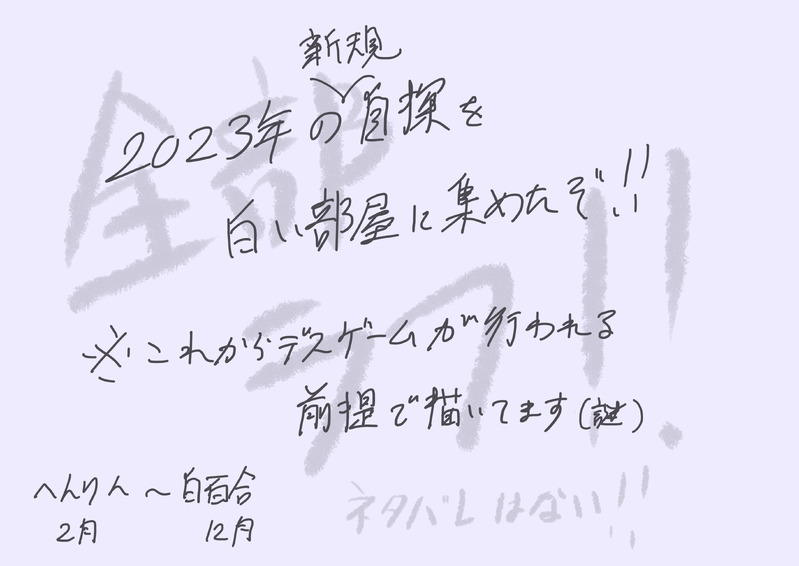 新規
2023年の自探を
白い部屋に集めたぞ!!
※これからデスゲームが行われる
前提で描いてます(謎)
へんりん～白百合
2月 12月
全部
ラフ!!
ネタバレはない!!